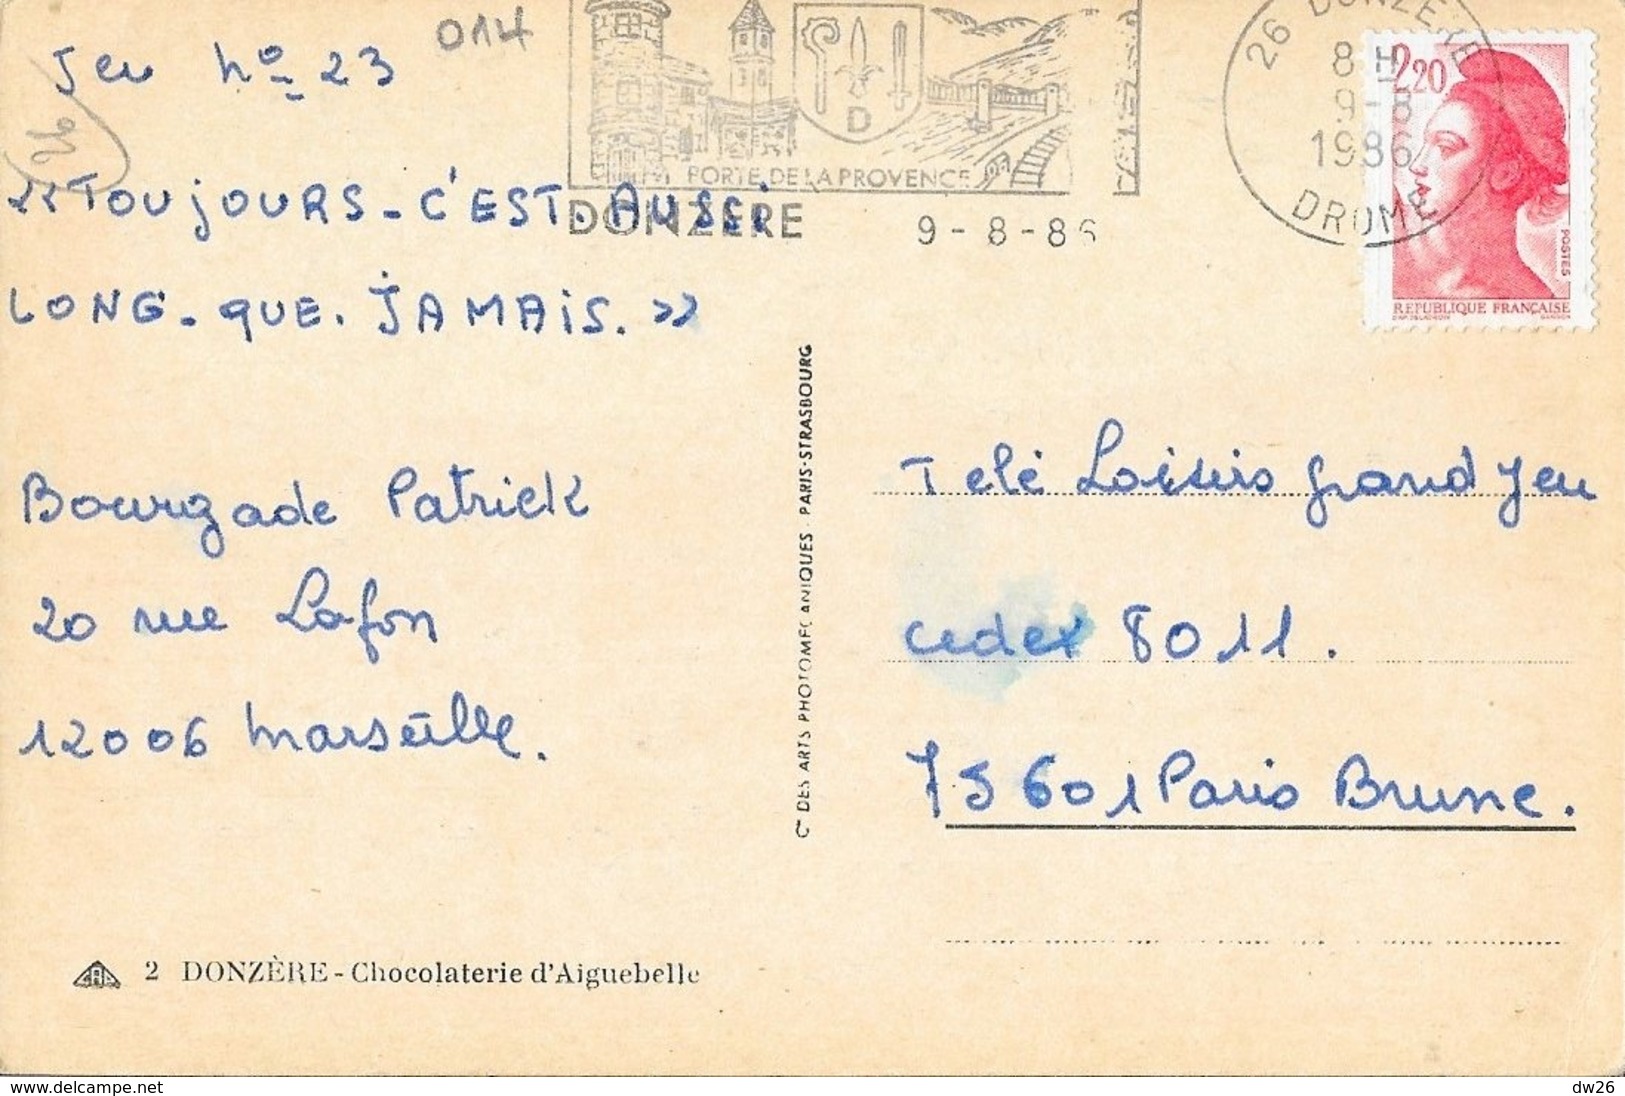 014
Jeu No 23
26
«TOUJOURS-C'EST.AUSSi
LONG-QUE.JAMAIS.»
Bourgade Patrick
20 rue Lafon
12006 Marseille.
2 DONZÈRE - Chocolaterie d'Aiguebelle
Cie DES ARTS PHOTOMECANIQUES - PARIS-STRASBOURG
D
PORTE DE LA PROVENCE
DONZERE
9-8-86
26 DONZERE
8 H
9-8
1986
DROME
2,20
POSTES
REPUBLIQUE FRANÇAISE
Télé Loisirs grand Jeu
cedex 8011.
75601 Paris Brune.
delcampe.net
dw26